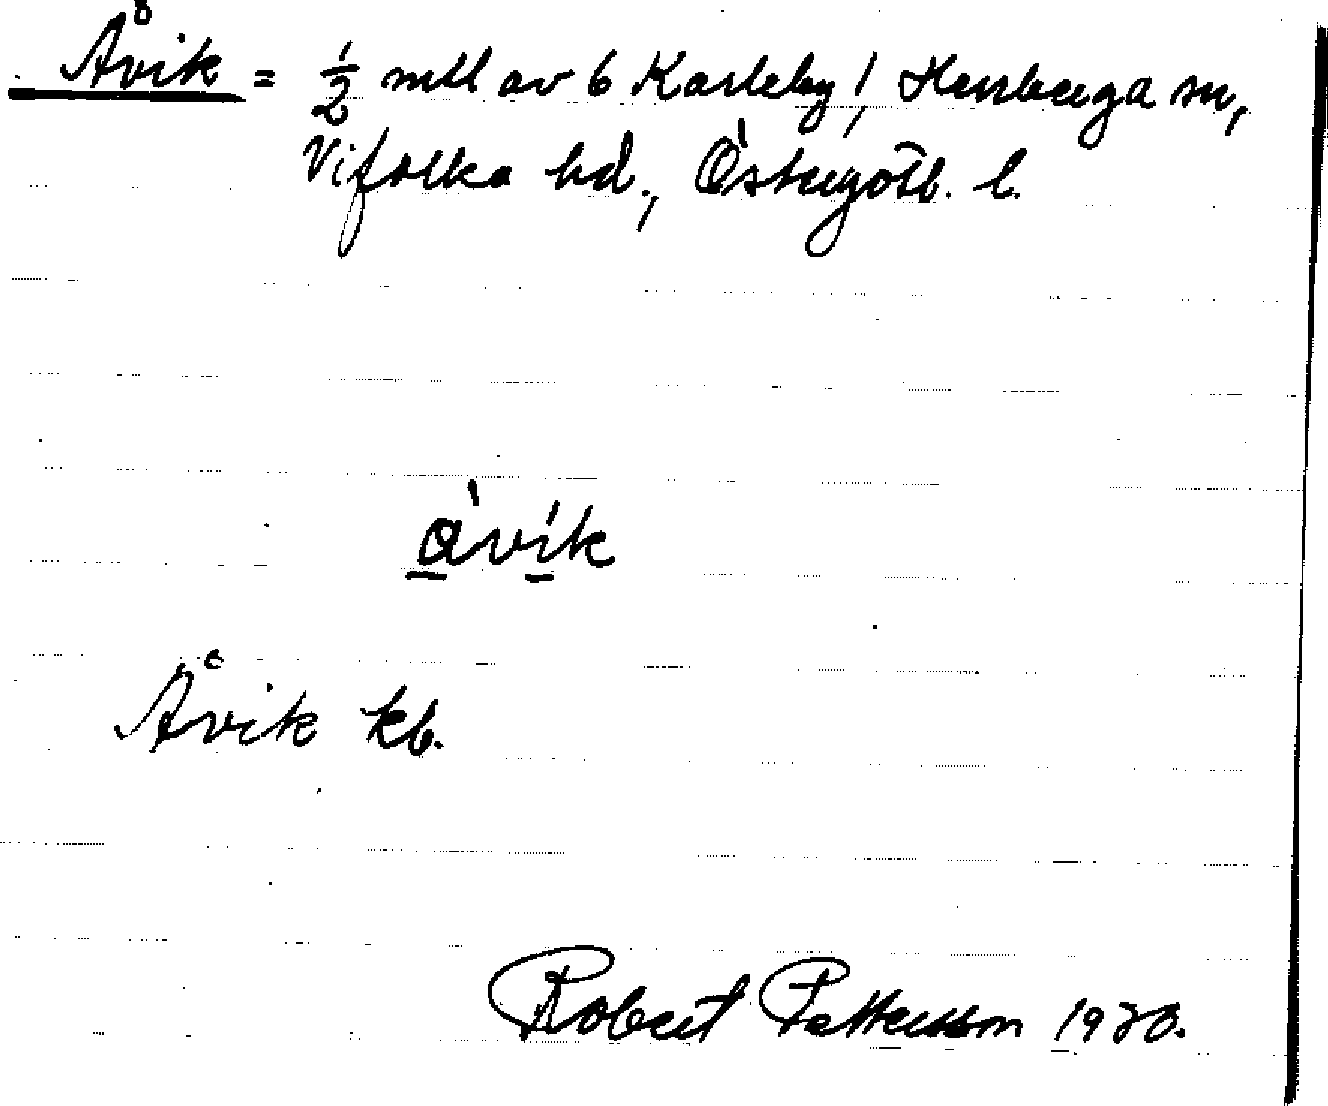 Åvik = 1/2 mtl av 6 Karleby, Herrberga sn,
Vifolka hd., Östergötl. l.
åvik
Åvik kb.
Robert Pettersson 1930.